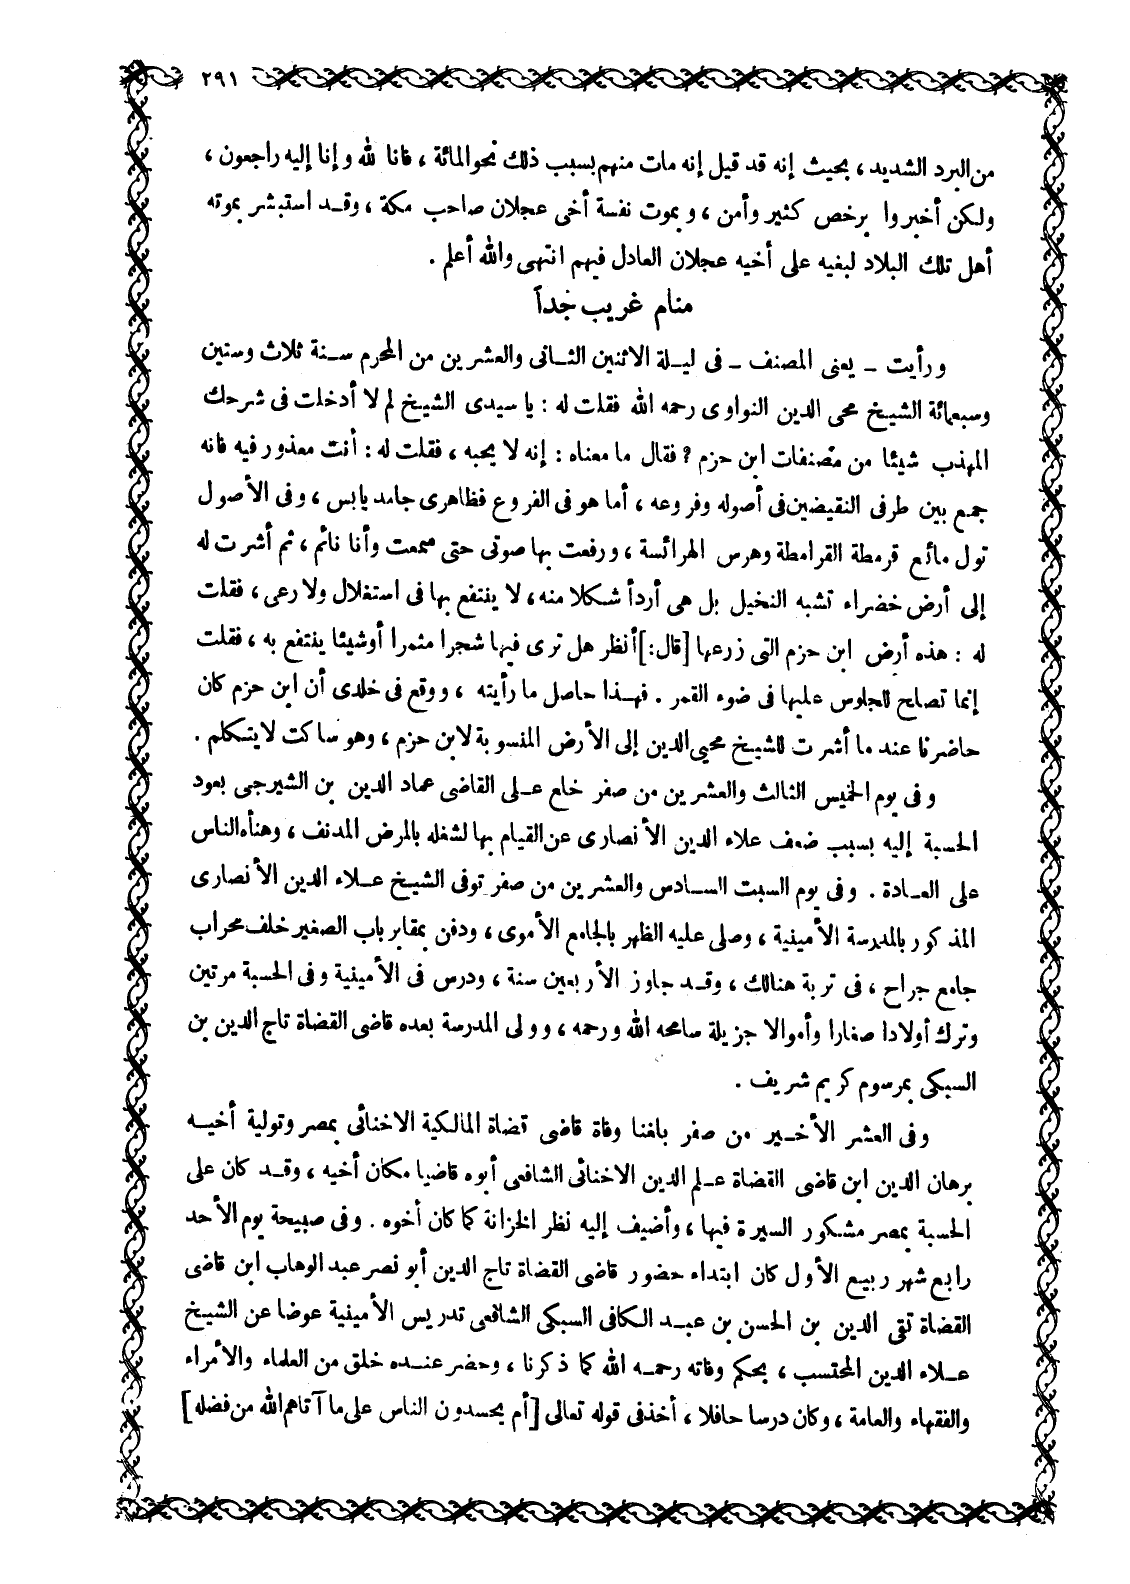 ٢٩١
من البرد الشديد ، بحيث إنه قد قيل إنه مات منهم بسبب ذلك نحو المائة ، فانا لله و إنا إليه راجعون ،
ولكن أخبروا برخص كثير وأمن ، و بموت نفسة أخى عجلان صاحب مكة ، وقـد استبشر بموته
أهل تلك البلاد لبغيه على أخيه عجلان العادل فيهم انتهى والله أعلم .
منام غريب جداً
ورأيت ـ يعنى المصنف ـ فى ليلة الاثنين الثـانى والعشرين من المحرم سـنة ثلاث وستين
وسبعمائة الشيخ محي الدين النواوى رحمه الله فقلت له : يا سيدى الشيخ لم لا أدخلت فى شرحك
المهذب شيئا من مصنفات ابن حزم ؟ فقال ما معناه : إنه لا يحبه ، فقلت له : أنت معذور فيه فانه
جمع بين طرفى النقيضين فى أصوله وفروعه ، أما هو فى الفروع فظاهرى جامد يابس ، وفى الأصول
تول مائع قرمطة القرامطة وهرس الهرائسة ، ورفعت بها صوتى حتى سمعت وأنا نائم ، ثم أشرت له
إلى أرض خضراء تشبه النخيل بل هى أردأ شكلا منه ، لا ينتفع بها فى استغلال ولا رعى ، فقلت
له : هذه أرض ابن حزم التى زرعها [قال:] أنظر هل ترى فيها شجرا مثمرا أو شيئا ينتفع به ، فقلت
إنما تصلح للجلوس عليها فى ضوء القمر . فهـذا حاصل ما رأيته ، ووقع فى خلدى أن ابن حزم كان
حاضرنا عند ما أشرت للشيخ محيي الدين إلى الأرض المنسوبة لابن حزم ، وهو ساكت لا يتكلم .
وفى يوم الخميس الثالث والعشرين من صفر خلع عـلى القاضى عماد الدين بن الشيرجى بعود
الحسبة إليه بسبب ضعف علاء الدين الأنصارى عن القيام بها لشغله بالمرض المدنف ، وهنأه الناس
على العـادة . وفى يوم السبت السـادس والعشرين من صفر توفى الشيخ عـلاء الدين الأنصارى
المذكور بالمدرسة الأمينية ، وصلى عليه الظهر بالجامع الأموى ، ودفن بمقابر باب الصغير خلف محراب
جامع جراح ، فى تربة هنالك ، وقـد جاوز الأربعين سنة ، ودرس فى الأمينية وفى الحسبة مرتين
وترك أولادا صغارا وأموالا جزيلة سامحه الله ورحمه ، وولى المدرسة بعده قاضى القضاة تاج الدين بن
السبكى بمرسوم كريم شريف .
وفى العشر الأخـير من صفر بلغنا وفاة قاضى قضاة المالكية الاخنائى بمصر وتولية أخيـه
برهان الدين ابن قاضى القضاة عـلم الدين الاخنائى الشافعى أبوه قاضيا مكان أخيه ، وقـد كان على
الحسبة بمصر مشكور السيرة فيها ، وأضيف إليه نظر الخزانة كما كان أخوه . وفى صبيحة يوم الأحد
رابع شهر ربيع الأول كان ابتداء حضور قاضى القضاة تاج الدين أبو نصر عبد الوهاب ابن قاضى
القضاة تقى الدين بن الحسن بن عبـد الكافى السبكى الشافعى تدريس الأمينية عوضا عن الشيخ
عـلاء الدين المحتسب ، بحكم وفاته رحمـه الله كما ذكرنا ، وحضر عنـده خلق من العلماء والأمراء
والفقهاء والعامة ، وكان درسا حافلا ، أخذ فى قوله تعالى [أم يحسدون الناس على ما آتاهم الله من فضله]